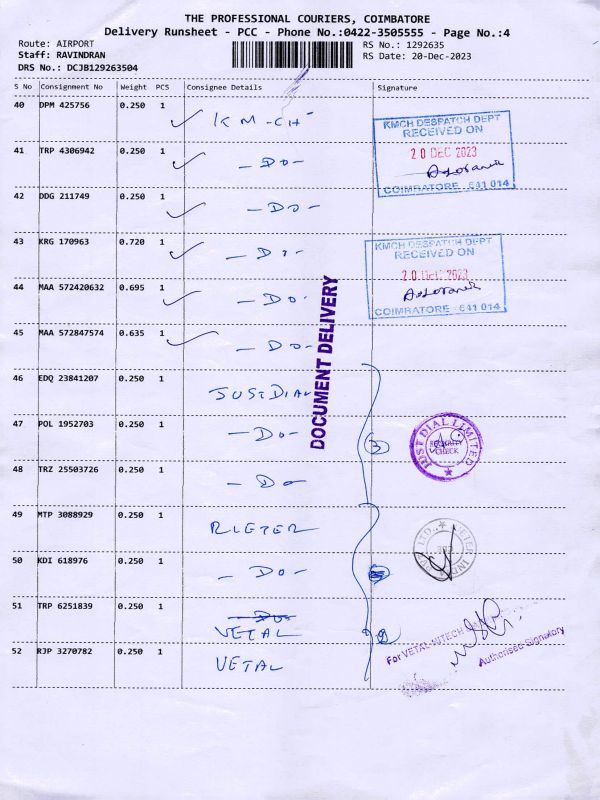 THE PROFESSIONAL COURIERS, COIMBATORE
Delivery Runsheet - PCC - Phone No.:0422-3505555 - Page No.:4
Route: AIRPORT
RS No.: 1292635
Staff: RAVINDRAN
RS Date: 20-Dec-2023
DRS No.: DCJB129263504
S No Consignment No Weight PCS Consignee Details Signature
40 DPM 425756 0.250 1 KM-CH
KMCH DESPATCH DEPT
RECEIVED ON
20 DEC 2023
COIMBATORE - 641 014
41 TRP 4306942 0.250 1 -DO-
42 DDG 211749 0.250 1 -DO-
43 KRG 170963 0.720 1 -DO-
KMCH DESPATCH DEPT
RECEIVED ON
20 DEC 2023
COIMBATORE - 641 014
44 MAA 572420632 0.695 1 -DO-
45 MAA 572847574 0.635 1 -DO-
DOCUMENT DELIVERY
46 EDQ 23841207 0.250 1 JUSTDIAL
47 POL 1952703 0.250 1 -DO-
3
JUST DIAL LIMITED
SECURITY
CHECK
48 TRZ 25503726 0.250 1 -DO-
49 MTP 3088929 0.250 1 RIETER
50 KDI 618976 0.250 1 -DO-
51 TRP 6251839 0.250 1 -DO-
VETAL
2
For VETAL HITECH
Authorised Signatory
52 RJP 3270782 0.250 1 VETAL